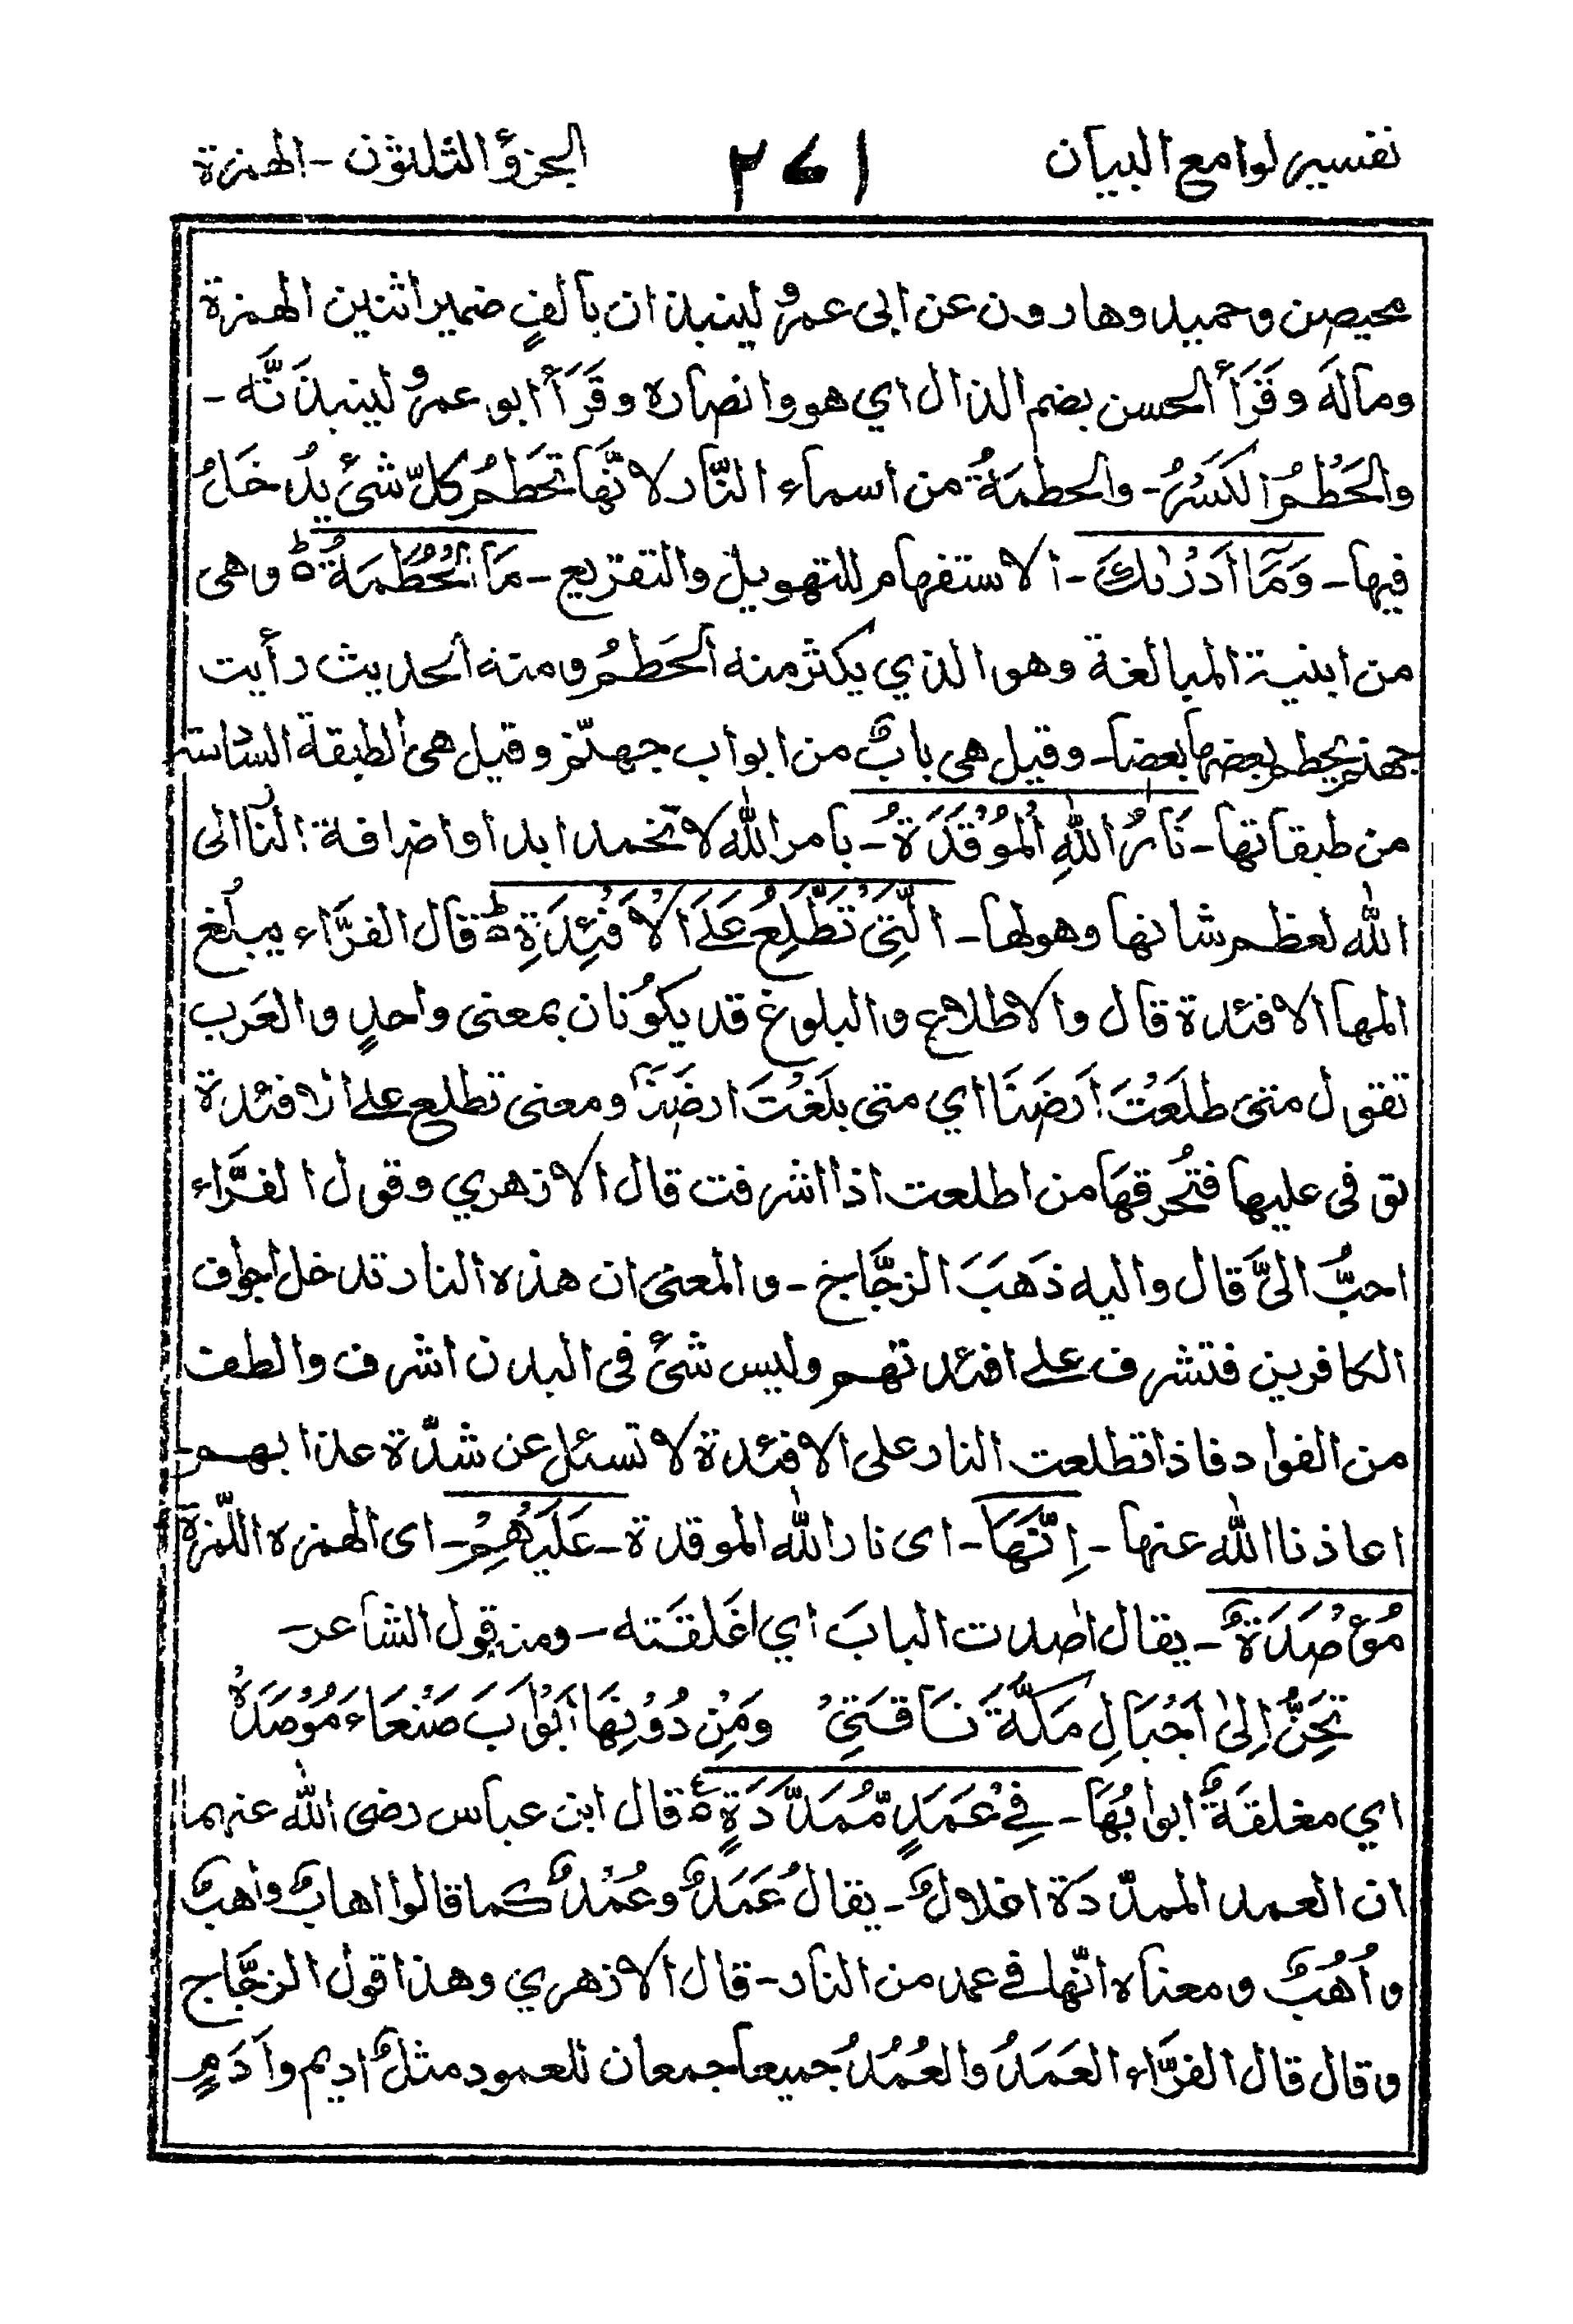 تفسير لوامع البيان ٢٧١ الجزؤ الثلثون - الهمزة
محيصن وحميد وهارون عن ابى عمرٍو لينبذان بالفٍ ضمير اثنين الهمزة
وماله وَقَرَأَ الحسن بضم الذال اي هو وانصاره وقَرَأَ ابو عمرٍو لينبذَنَّه -
والحَطْمُ الكَسْرُ - والحطمةُ من اسماء النَّار لانَّها تحَطِمُ كلّ شئ يُدْخَلُ
فيها - وَمَآ اَدْرٰىكَ - الاستفهام للتهويل والتقريع - مَا الْحُطَمَةُ ۝ وهى
من ابنية المبالغة وهو الذي يكثر منه الحَطمُ ومنه الحديث رأيت
جهنم يحطم بعضها بعضا - وقيل هى بابٌ من ابواب جهنّم وقيل هى الطبقة السادسة
من طبقاتها - نَارُ اللّٰهِ الْمُوْقَدَةُ - بامر اللّٰه لا تخمد ابدا واضافة النا الى
اللّٰه لعظم شانها وهولها - الَّتِىْ تَطَّلِعُ عَلَى الْاَفْئِدَةِ ۝ قال الفرَّاء يبلُغ
المها الافئدة قال والاطلاع والبلوغ قد يكونان بمعنى واحدٍ والعَرب
تقول متى طلَعْتَ اَرضَنَا اي متى بلَغْتَ ارضَنَا ومعنى تطلع على الافئدة
توفى عليها فتُحرقهَا من اطلعت اذا اشرفت قال الازهري وقول الفرَّاء
احبُّ الىَّ قال واليه ذَهَبَ الزجَّاج - والمعنى ان هذه النار تدخل اجواف
الكافرين فتشرف على افئدتهم وليس شئ فى البدن اشرف والطف
من الفواد فاذا تطلعت النار على الافئدة لا تسئل عن شدّة عذابهم -
اعاذنا اللّٰه عنها - اِنَّهَا - اى نار اللّٰه الموقدة - عَلَيْهِمْ - اى الهمزه اللّمزة
مُؤْصَدَةٌ - يقال اٰصدت البابَ اي اغَلقَته - ومنه قول الشاعر -
تَحِنُّ اِلىٰ اَجْبَالِ مَكَّةَ نَاقَتِىْ وَمِنْ دُوْنِهَا اَبْوَابَ صَنْعَاءَ مُوْصَدَةْ
اي مغلقةٌ ابوابُهَا - فِىْ عَمَدٍ مُّمَدَّدَةٍ ۝ قال ابن عباس رضى اللّٰه عنهما
ان العمد الممدّدَة اغلالٌ - يقالُ عَمَدٌ وعُمُدٌ كما قالوا اهابٌ وأهبٌ
واُهُبٌ ومعناه انّها فى عمد من النار - قال الازهري وهذا قول الزجَّاج
وقال قال الفرّاء العَمَدُ والعُمُدُ جميعا جمعان للعمود مثلٌ اديم واَدَمٍ